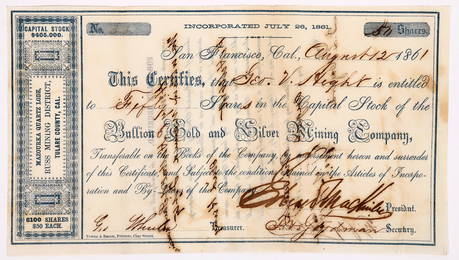 CAPITAL STOCK
$405,000.
MADURKA QUARTZ LODE,
RUSS MINING DISTRICT,
TULARE COUNTY, CAL.
8100 SHARES
$50 EACH.
No.
INCORPORATED JULY 26, 1861.
50 Shares.
San Francisco, Cal., August 12 1861
This Certifies, that Geo. V. Hight is entitled
to Fifty Shares in the Capital Stock of the
Bullion Gold and Silver Mining Company,
Transferable on the Books of the Company, by endorsement hereon and surrender
of this Certificate, and Subject to the conditions contained in the Articles of Incorpo-
ration and By-Laws of this Company.
President.
Geo Wheeler Treasurer.
Secretary.
Towne & Bacon, Printers, Clay Street.